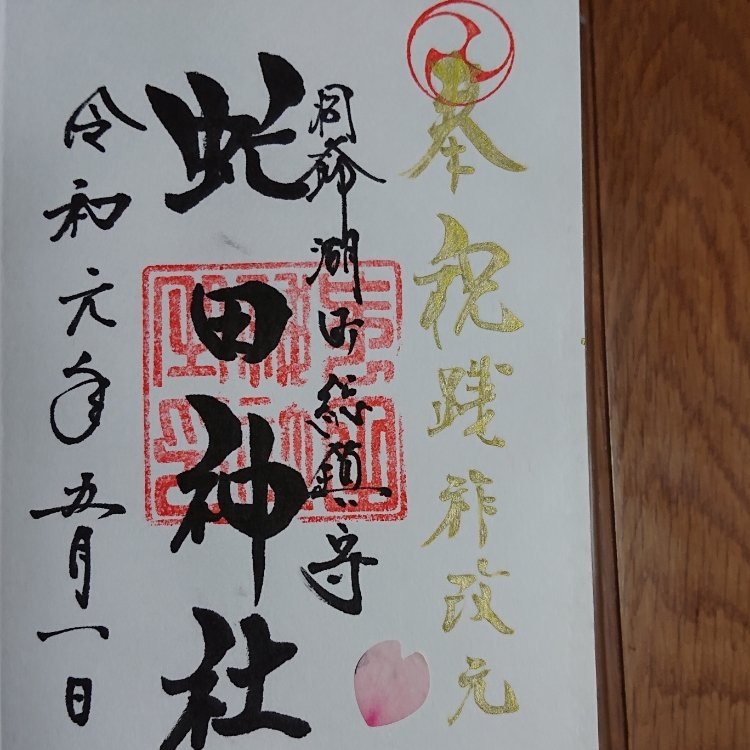 奉祝践祚改元
洞爺湖町総鎮守
虻田神社
令和元年五月一日